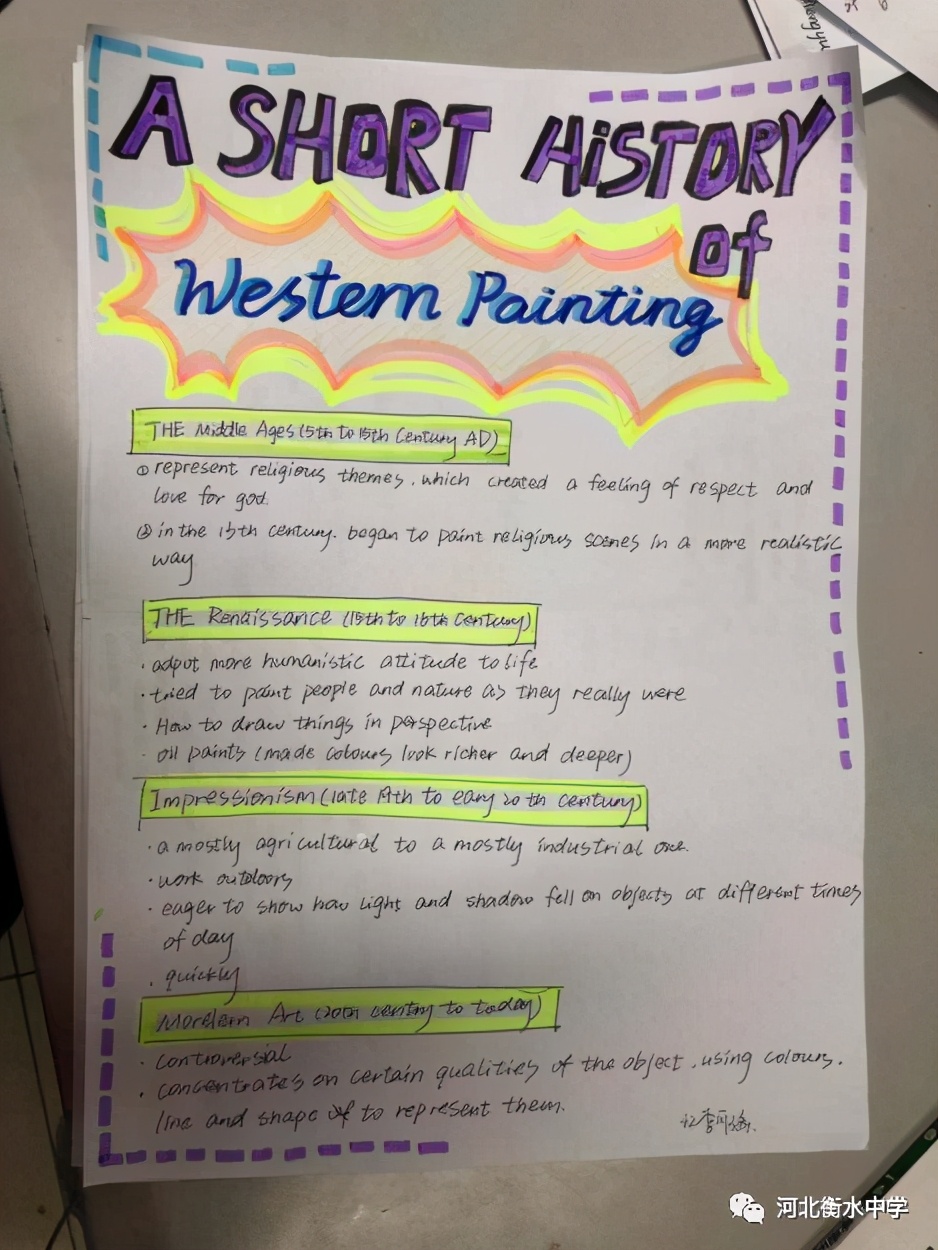 A SHORT HISTORY
of
Western Painting
THE Middle Ages (5th to 15th Century AD)
① represent religious themes. which created a feeling of respect and
love for god.
② in the 13th century. began to paint religious scenes in a more realistic
way
THE Renaissance (15th to 16th Century)
· adput more humanistic attitude to life
· tried to paint people and nature as they really were
· How to draw things in perspective
· oil paints (made colours look richer and deeper)
Impressionism (late 19th to eary 20th century)
· a mostly agricultural to a mostly industrial one.
· work outdoors
· eager to show how light and shadow fell on objects at different times
of day
· quickly
Mordern Art (20th century to today)
· controversial
· concentrates on certain qualities of the object. using colours.
line and shape to represent them.
河北衡水中学